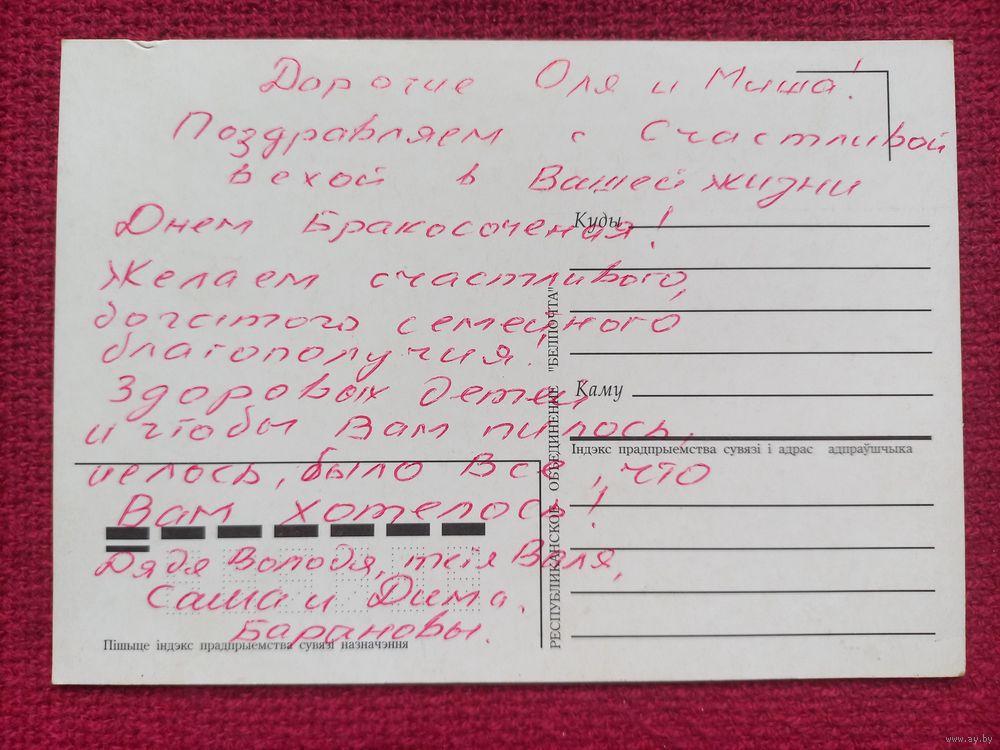 Дорогие Оля и Миша!
Поздравляем с Счастливой
вехой в Вашей жизни
Днем Бракосочения!
Куды
Желаем счастливого,
богатого семейного
благополучия!
Здоровых детей
Каму
и чтобы Вам пилось,
Індэкс прадпрыемства сувязі і адрас адпраўшчыка
иелось, было все, что
Вам хотелось!
Дядя Володя, тётя Валя,
Саша и Дима.
Барановы.
Пішыце індэкс прадпрыемства сувязі назначэння
РЕСПУБЛИКАНСКОЕ ОБЪЕДИНЕНИЕ "БЕЛПОЧТА"
www.ay.by